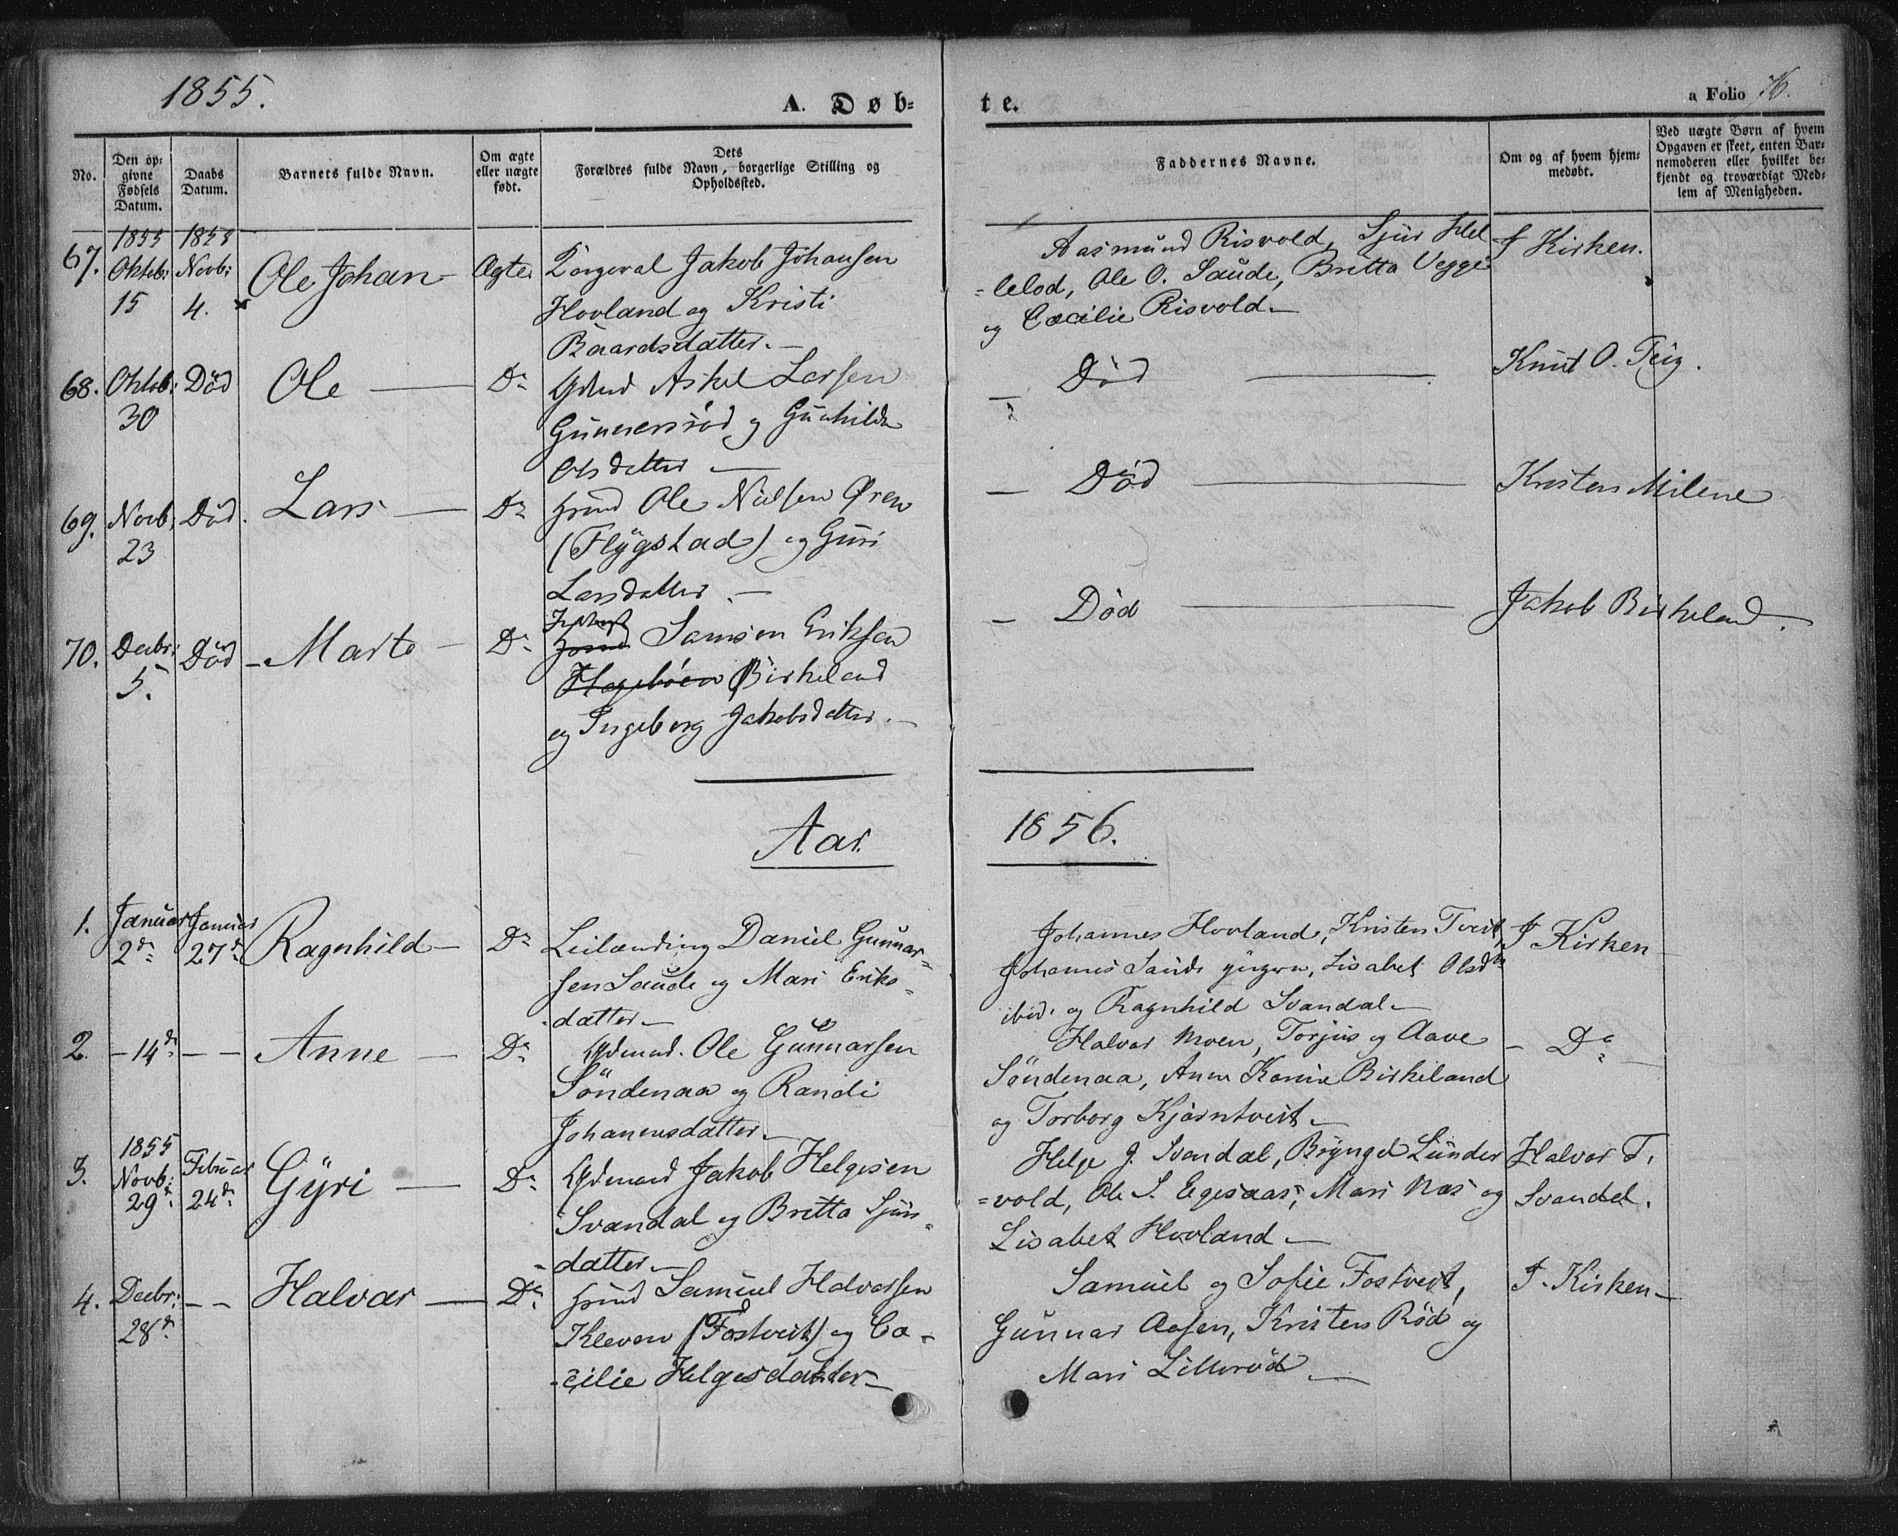 1855.
A. Døb=
te.
a Folio 76.
No.
Den op=
givne
Fødsels
Datum.
Daabs
Datum.
Barnets fulde Navn.
Om ægte
eller uægte
født.
Dets
Forældres fulde Navn, borgerlige Stilling og
Opholdssted.
Faddernes Navne.
Om og af hvem hjem=
medøbt.
Ved uægte Børn af hvem
Opgaven er skeet, enten Bar=
nemoderen eller hvilket be=
kjendt og troværdigt Med=
lem af Menigheden.
67.
1855
Oktob:
15
1855
Novb:
4.
Ole Johan -
Ægte.
Jakob Johansen
Hovland og Kristi
Baardsdatter. -
Aasmund Risvold, Sjur Hel
=lelod, Ole O. Saude, Britta Vegge
og Cæcilie Risvold -
I Kirken.
68.
Oktob:
30
Død
Ole —
Do
Gdmd Askel Larsen
Gunnersrød og Gunhilda
Olsdatter —
— Død —
Knut O. Teig.
69.
Novb:
23
Død.
Lars —
Do
Hsmd Ole Nielsen Øren
(Flygstad) og Guri
Larsdatter. —
— Død —
Kristen Milene
70.
Decbr:
5.
Død
- Marte -
Do
Samson Eriksen
Birkeland
og Ingeborg Jakobsdatter. -
— Død —
Jakob Birkeland.
Aar
1856.
1.
Januar
2d
Januar
27d
Ragnhild -
Do
Leilænding Daniel Gunnar=
sen Saude og Mari Eriks=
datter -
Johannes Hovland, Kristen Tveit,
Johannes Saude yngre, Lisabet Olsdtr
ibid. og Ragnhild Svandal -
I Kirken
2.
- 14d
- -
Anne -
Do
Gdmand. Ole Gunnarsen
Söndenaa og Randi
Johannesdatter -
Halvar Moen, Torjus og Aave
Söndenaa, Anne Karine Birkeland
og Torborg Kjærntveit -
- Do -
3.
1855
Novb:
29d
Februar
24d
Gyri —
Do
Gdmand Jakob Helgesen
Svandal og Britta Sjurs=
datter -
Helge J. Svandal, Bryngel Lunder
=vold, Ole S. Egesaas, Mari Næs og
Lisabet Hovland -
Halvor T.
Svandal.
4.
Decbr:
28d
- -
Halvar —
Do
Hsmd Samuel Halvorsen
Kleven (Fostveit) og Cæ-
-cilie Helgesdatter -
Samuel og Sofie Fostveit,
Gunnar Aasen, Kristen Rød og
Mari Lillerød -
I. Kirken -